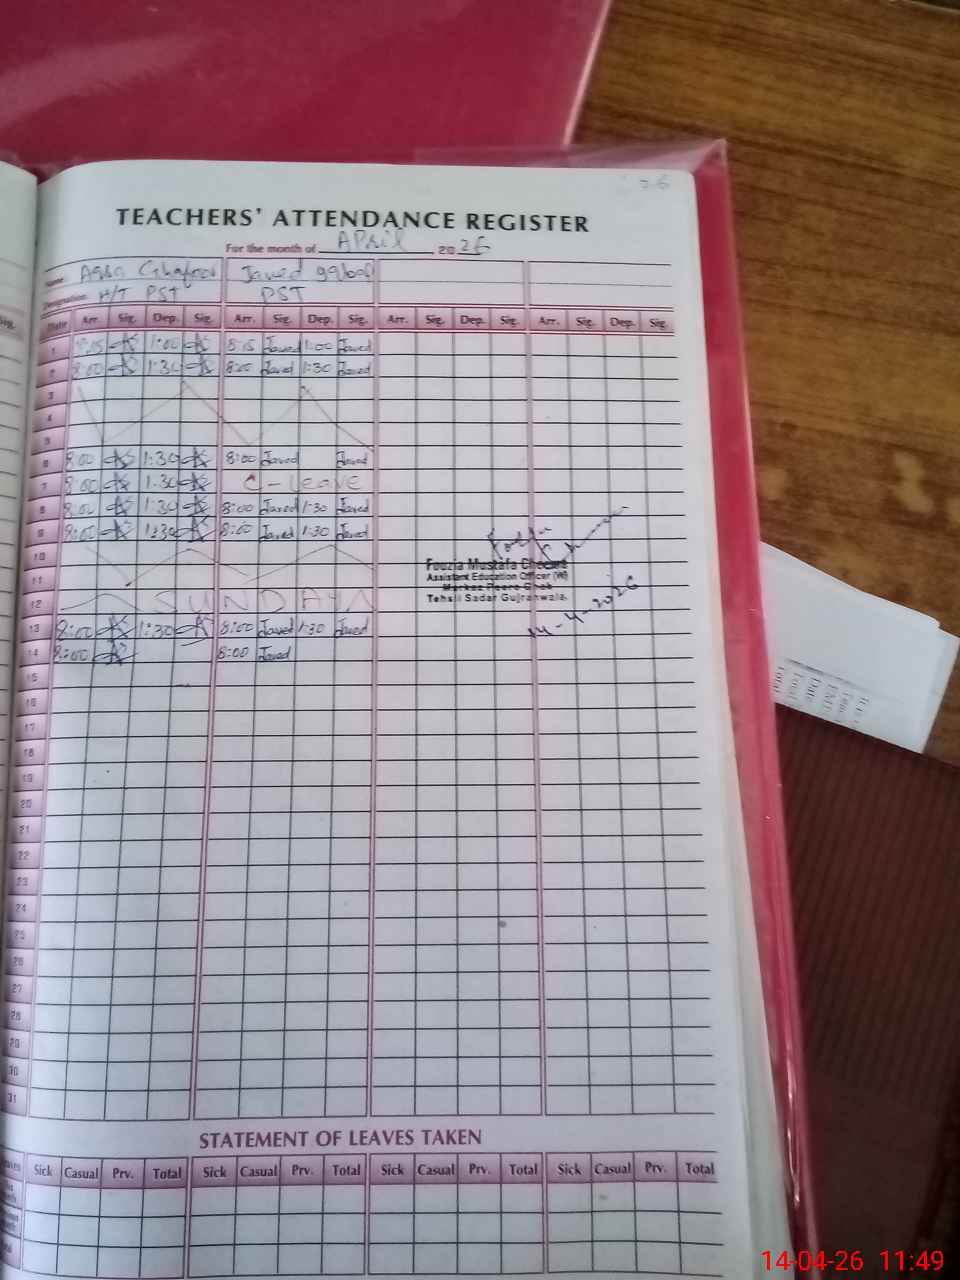 TEACHERS' ATTENDANCE REGISTER
For the month of APRil 2026
Name: Aqsa Ghafoor Javed Iqbal
Designation: H/T PST PST
Date Arr. Sig. Dep. Sig. Arr. Sig. Dep. Sig. Arr. Sig. Dep. Sig. Arr. Sig. Dep. Sig.
1 1:00 8:15 Javed 1:00 Javed
2 8:00 1:30 8:00 Javed 1:30 Javed
3
4
5
6 8:00 1:30 8:00 Javed Javed
7 8:00 1:30 C-Leave
8 8:00 1:30 8:00 Javed 1:30 Javed
9 8:00 1:30 8:00 Javed 1:30 Javed
10
11
Fouzia Mustafa Cheema
Assistant Education Officer (W)
Markaz Feero Chak
Tehsil Sadar Gujranwala.
14-4-2026
12 SUNDAY
13 8:00 1:30 8:00 Javed 1:30 Javed
14 8:00 8:00 Javed
15
16
17
18
19
20
21
22
23
24
25
26
27
28
29
30
31
STATEMENT OF LEAVES TAKEN
Sick Casual Prv. Total Sick Casual Prv. Total Sick Casual Prv. Total Sick Casual Prv. Total
Date
Total
14-04-26 11:49